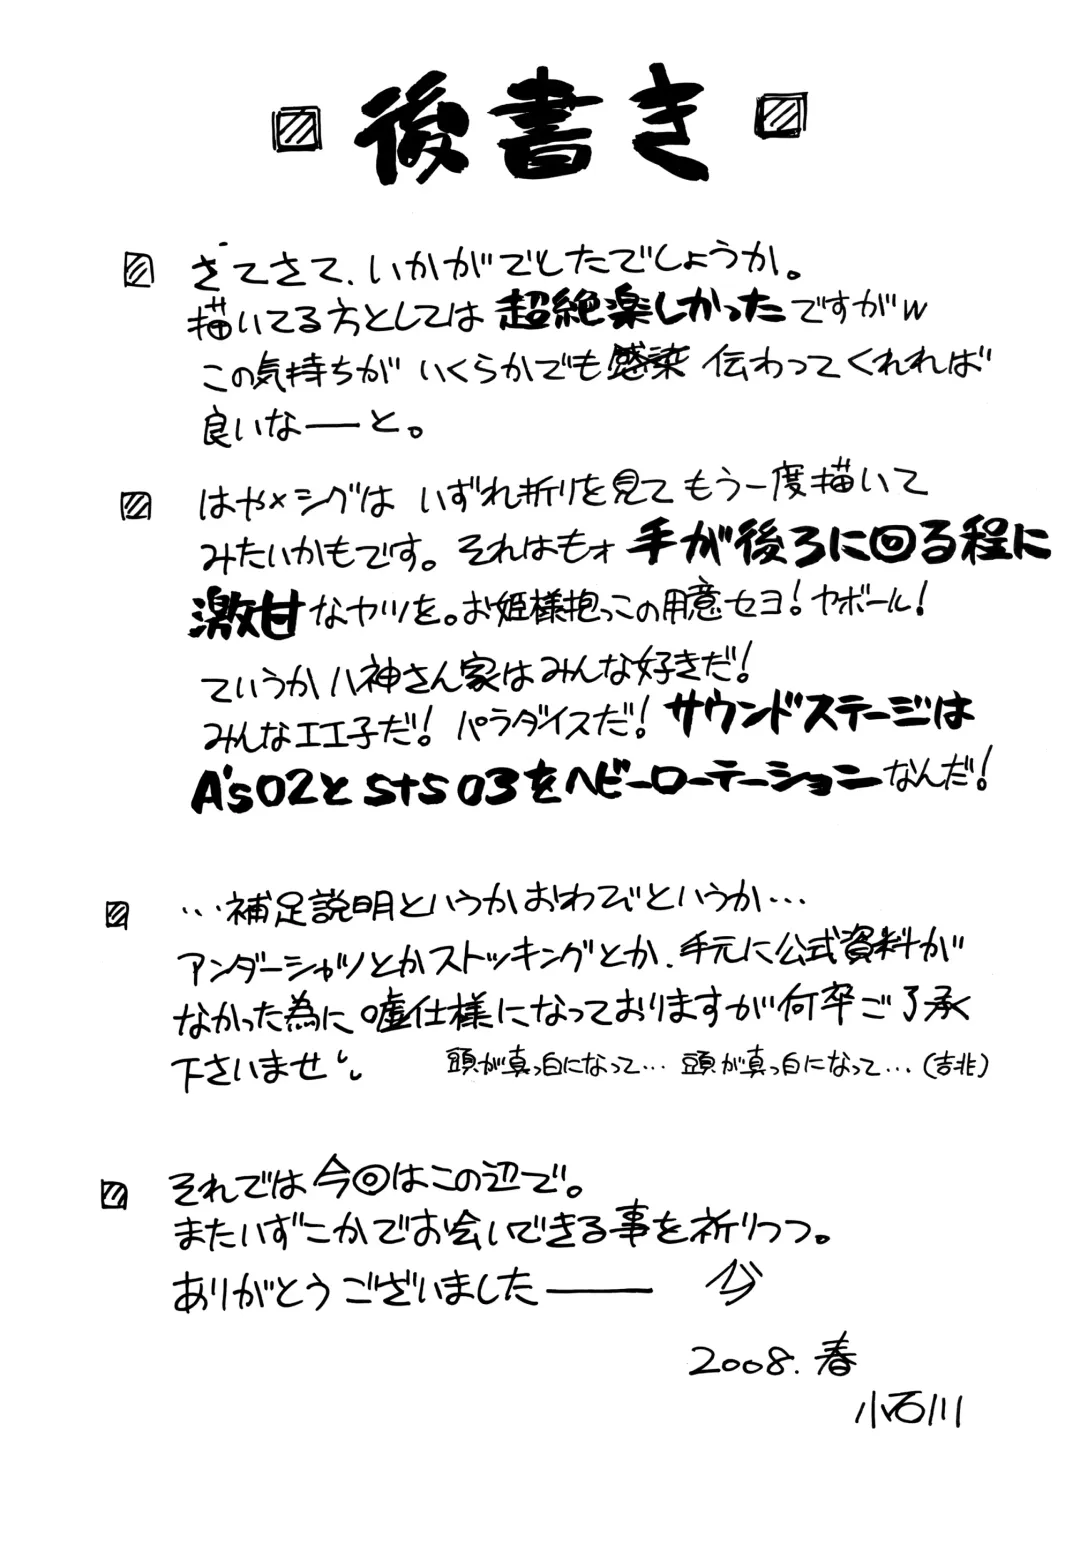 後書き
さてさて、いかがでしたでしょうか。
描いてる方としては超絶楽しかったですがw
この気持ちがいくらかでも感染 伝わってくれれば
良いなーーと。
はや×シグは いずれ折りを見て もう一度描いて
みたいかもです。それはもォ手が後ろに回る程に
激甘なヤツを。お姫様抱っこの用意セヨ!ヤボール!
ていうか八神さん家はみんな好きだ!
みんなエエ子だ!パラダイスだ!サウンドステージは
A's02とStS03をヘビーローテーションなんだ!
…補足説明というかおわびというか…
アンダーシャツとかストッキングとか、手元に公式資料が
なかった為に嘘仕様になっておりますが何卒ご了承
下さいませ。
頭が真っ白になって…頭が真っ白になって…(吉兆)
それでは今回はこの辺で。
またいずこかでお会いできる事を祈りつつ。
ありがとうございましたーー
2008.春
小石川